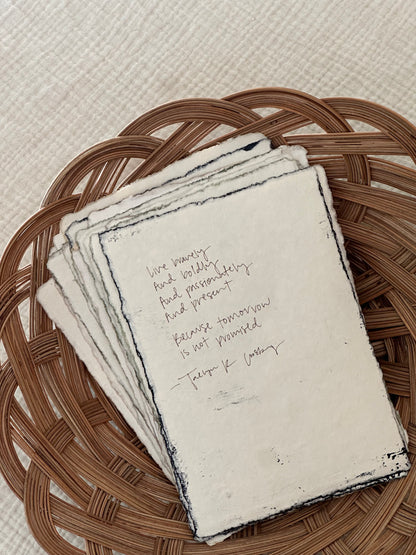 Live bravely
And boldly
And passionately
And present
Because tomorrow
is not promised
K